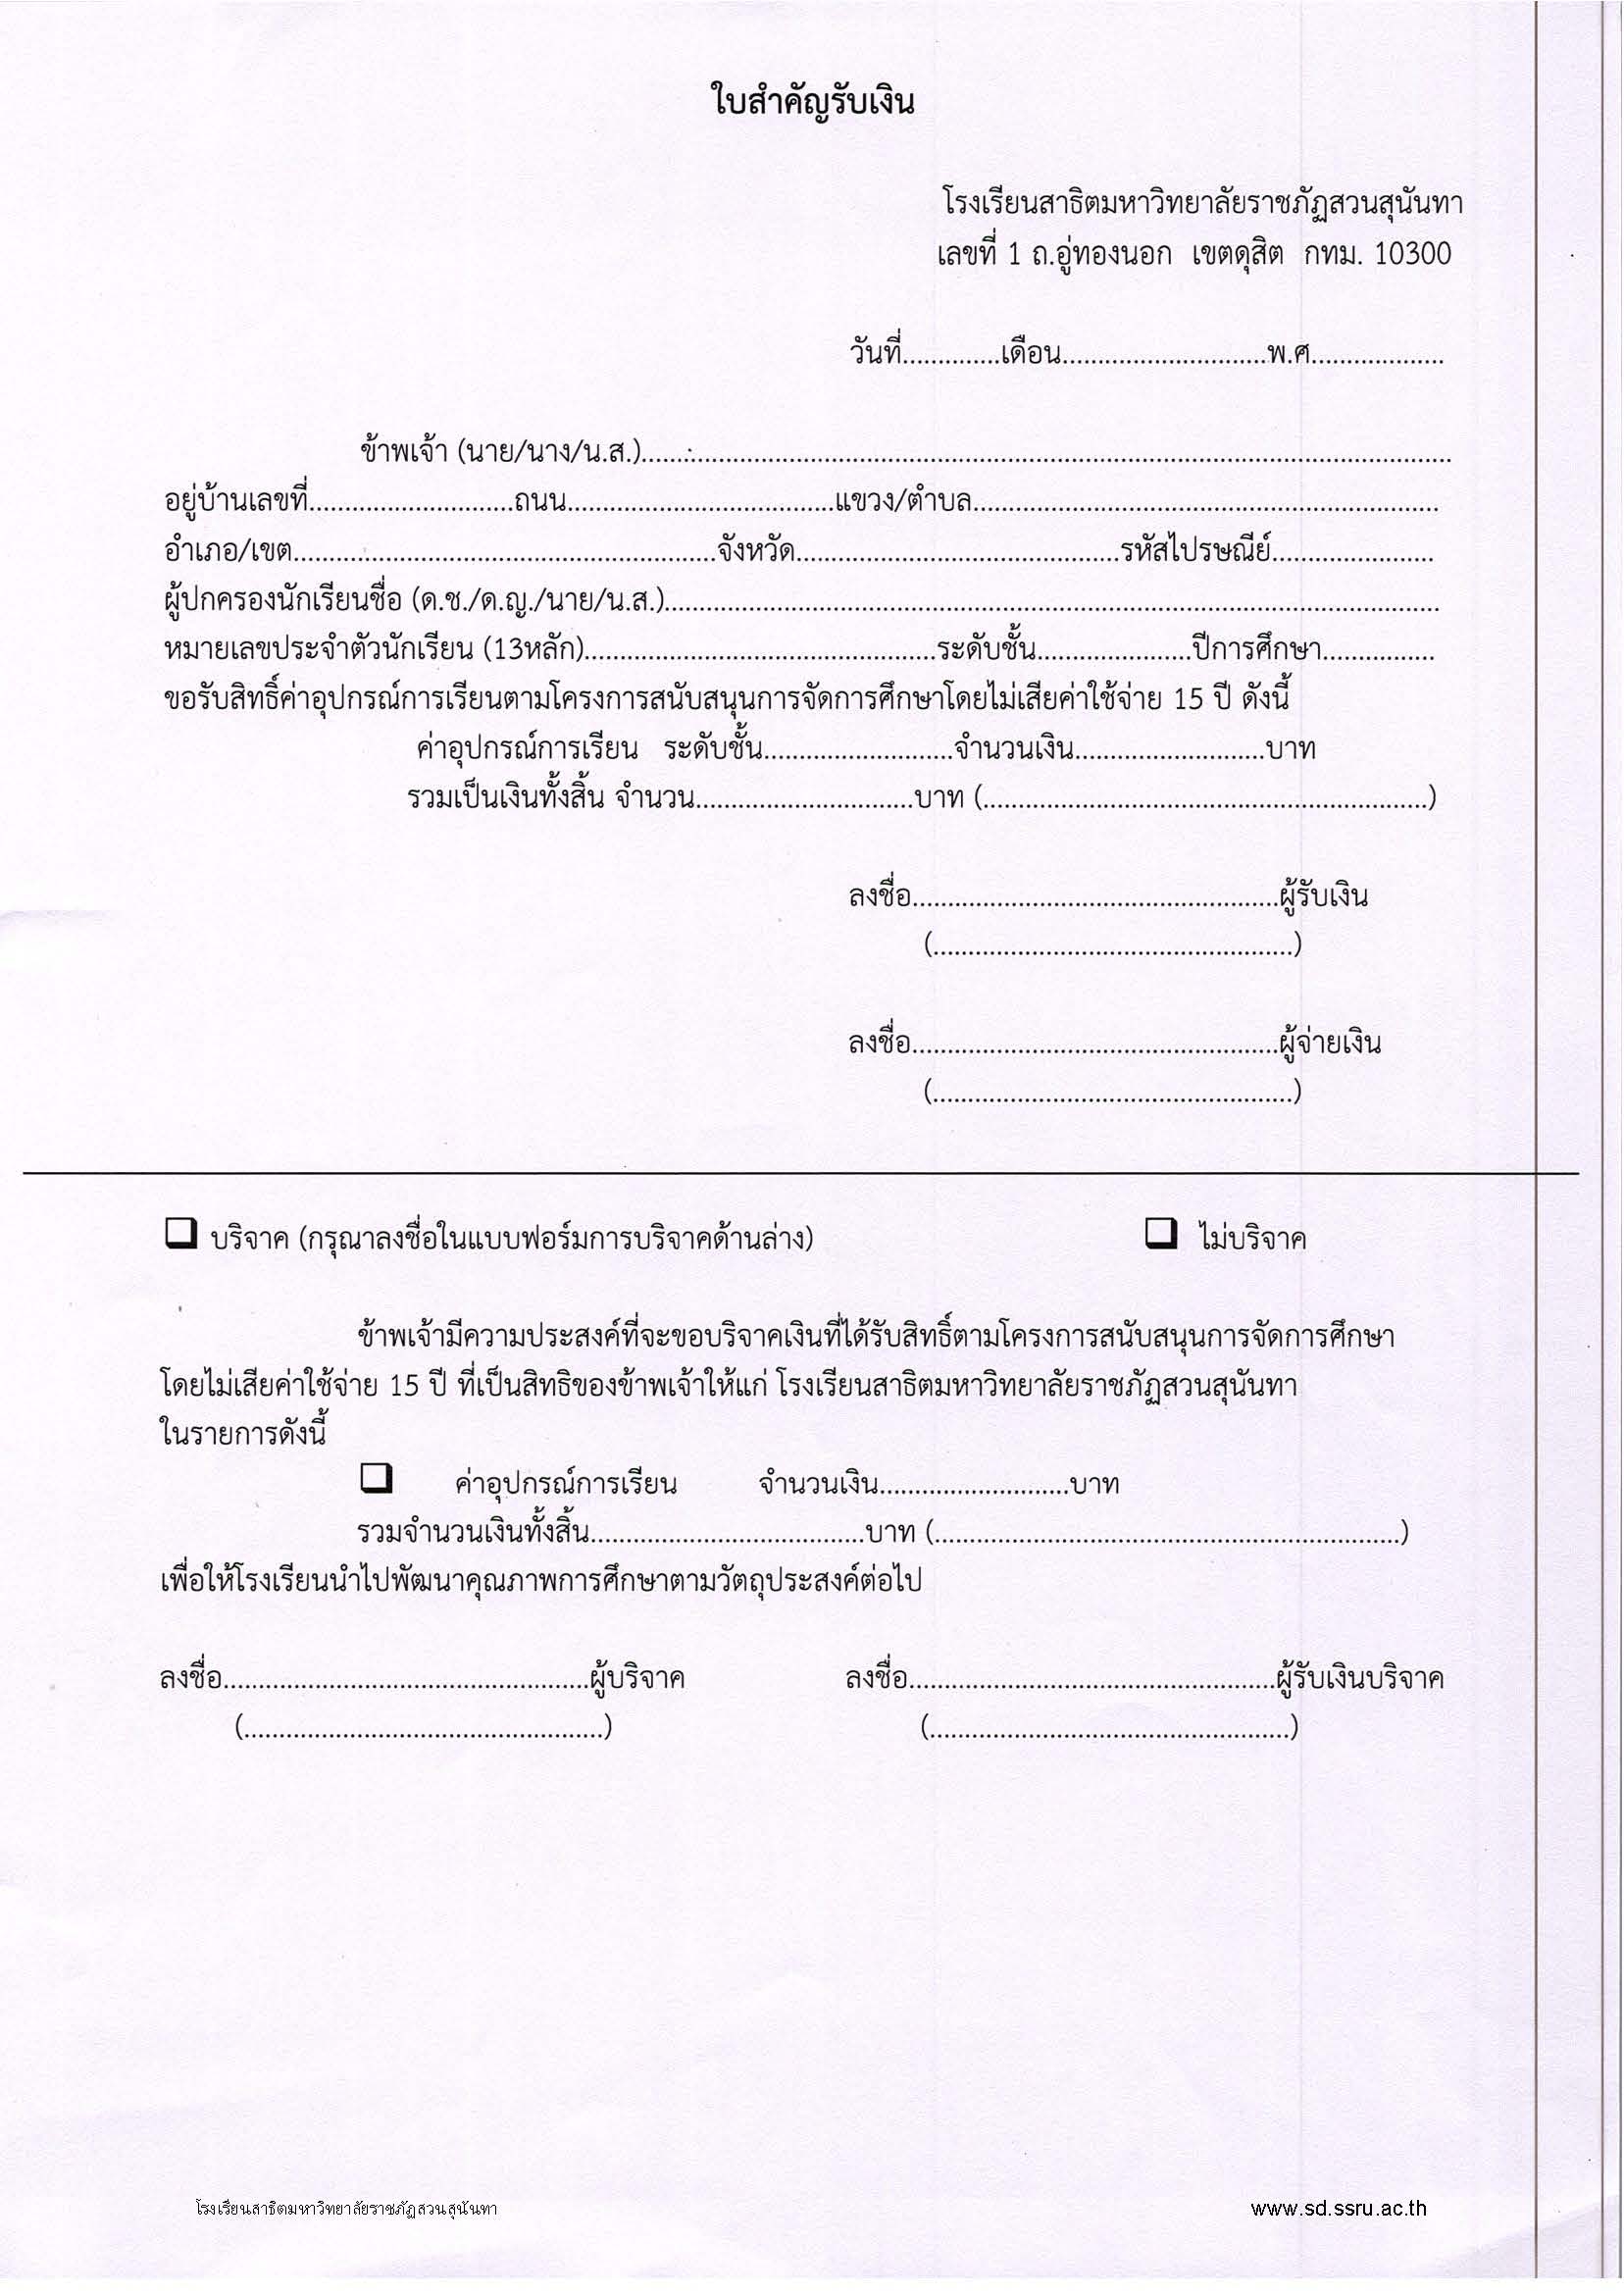 ใบสำคัญรับเงิน
โรงเรียนสาธิตมหาวิทยาลัยราชภัฏสวนสุนันทา
เลขที่ 1 ถ.อู่ทองนอก เขตดุสิต กทม. 10300
วันที่..............เดือน.............................พ.ศ...................
ข้าพเจ้า (นาย/นาง/น.ส.)....................................................................................................................
อยู่บ้านเลขที่.............................ถนน......................................แขวง/ตำบล..................................................................
อำเภอ/เขต............................................................จังหวัด..............................................รหัสไปรษณีย์.......................
ผู้ปกครองนักเรียนชื่อ (ด.ช./ด.ญ./นาย/น.ส.)..............................................................................................................
หมายเลขประจำตัวนักเรียน (13หลัก)..................................................ระดับชั้น......................ปีการศึกษา................
ขอรับสิทธิ์ค่าอุปกรณ์การเรียนตามโครงการสนับสนุนการจัดการศึกษาโดยไม่เสียค่าใช้จ่าย 15 ปี ดังนี้
ค่าอุปกรณ์การเรียน ระดับชั้น...........................จำนวนเงิน...........................บาท
รวมเป็นเงินทั้งสิ้น จำนวน...............................บาท (...............................................................)
ลงชื่อ....................................................ผู้รับเงิน
(...................................................)
ลงชื่อ....................................................ผู้จ่ายเงิน
(...................................................)
❑ บริจาค (กรุณาลงชื่อในแบบฟอร์มการบริจาคด้านล่าง) ❑ ไม่บริจาค
ข้าพเจ้ามีความประสงค์ที่จะขอบริจาคเงินที่ได้รับสิทธิ์ตามโครงการสนับสนุนการจัดการศึกษา
โดยไม่เสียค่าใช้จ่าย 15 ปี ที่เป็นสิทธิของข้าพเจ้าให้แก่ โรงเรียนสาธิตมหาวิทยาลัยราชภัฏสวนสุนันทา
ในรายการดังนี้
❑ ค่าอุปกรณ์การเรียน จำนวนเงิน...........................บาท
รวมจำนวนเงินทั้งสิ้น.......................................บาท (..................................................................)
เพื่อให้โรงเรียนนำไปพัฒนาคุณภาพการศึกษาตามวัตถุประสงค์ต่อไป
ลงชื่อ....................................................ผู้บริจาค ลงชื่อ....................................................ผู้รับเงินบริจาค
(...................................................) (...................................................)
โรงเรียนสาธิตมหาวิทยาลัยราชภัฏสวนสุนันทา www.sd.ssru.ac.th